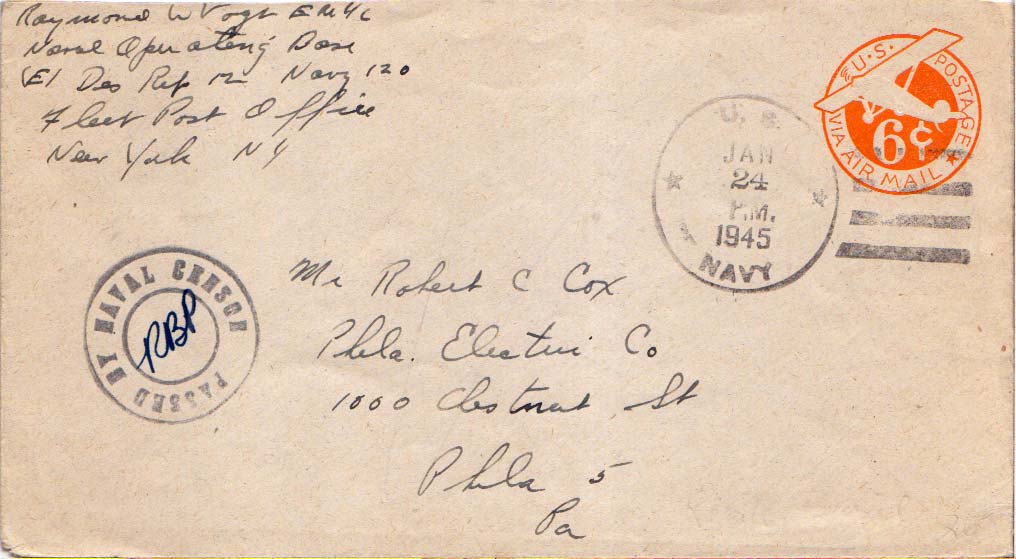 Raymond W Vogt EM 1/c
Naval Operating Base
El Des Rep 12 Navy 120
Fleet Post Office
New York NY
U.S. POSTAGE
6¢
VIA AIR MAIL
U. S.
JAN
24
P.M.
1945
NAVY
PASSED BY NAVAL CENSOR
RBP
Mr Robert C Cox
Phila. Electric Co
1000 Chestnut St
Phila 5
Pa